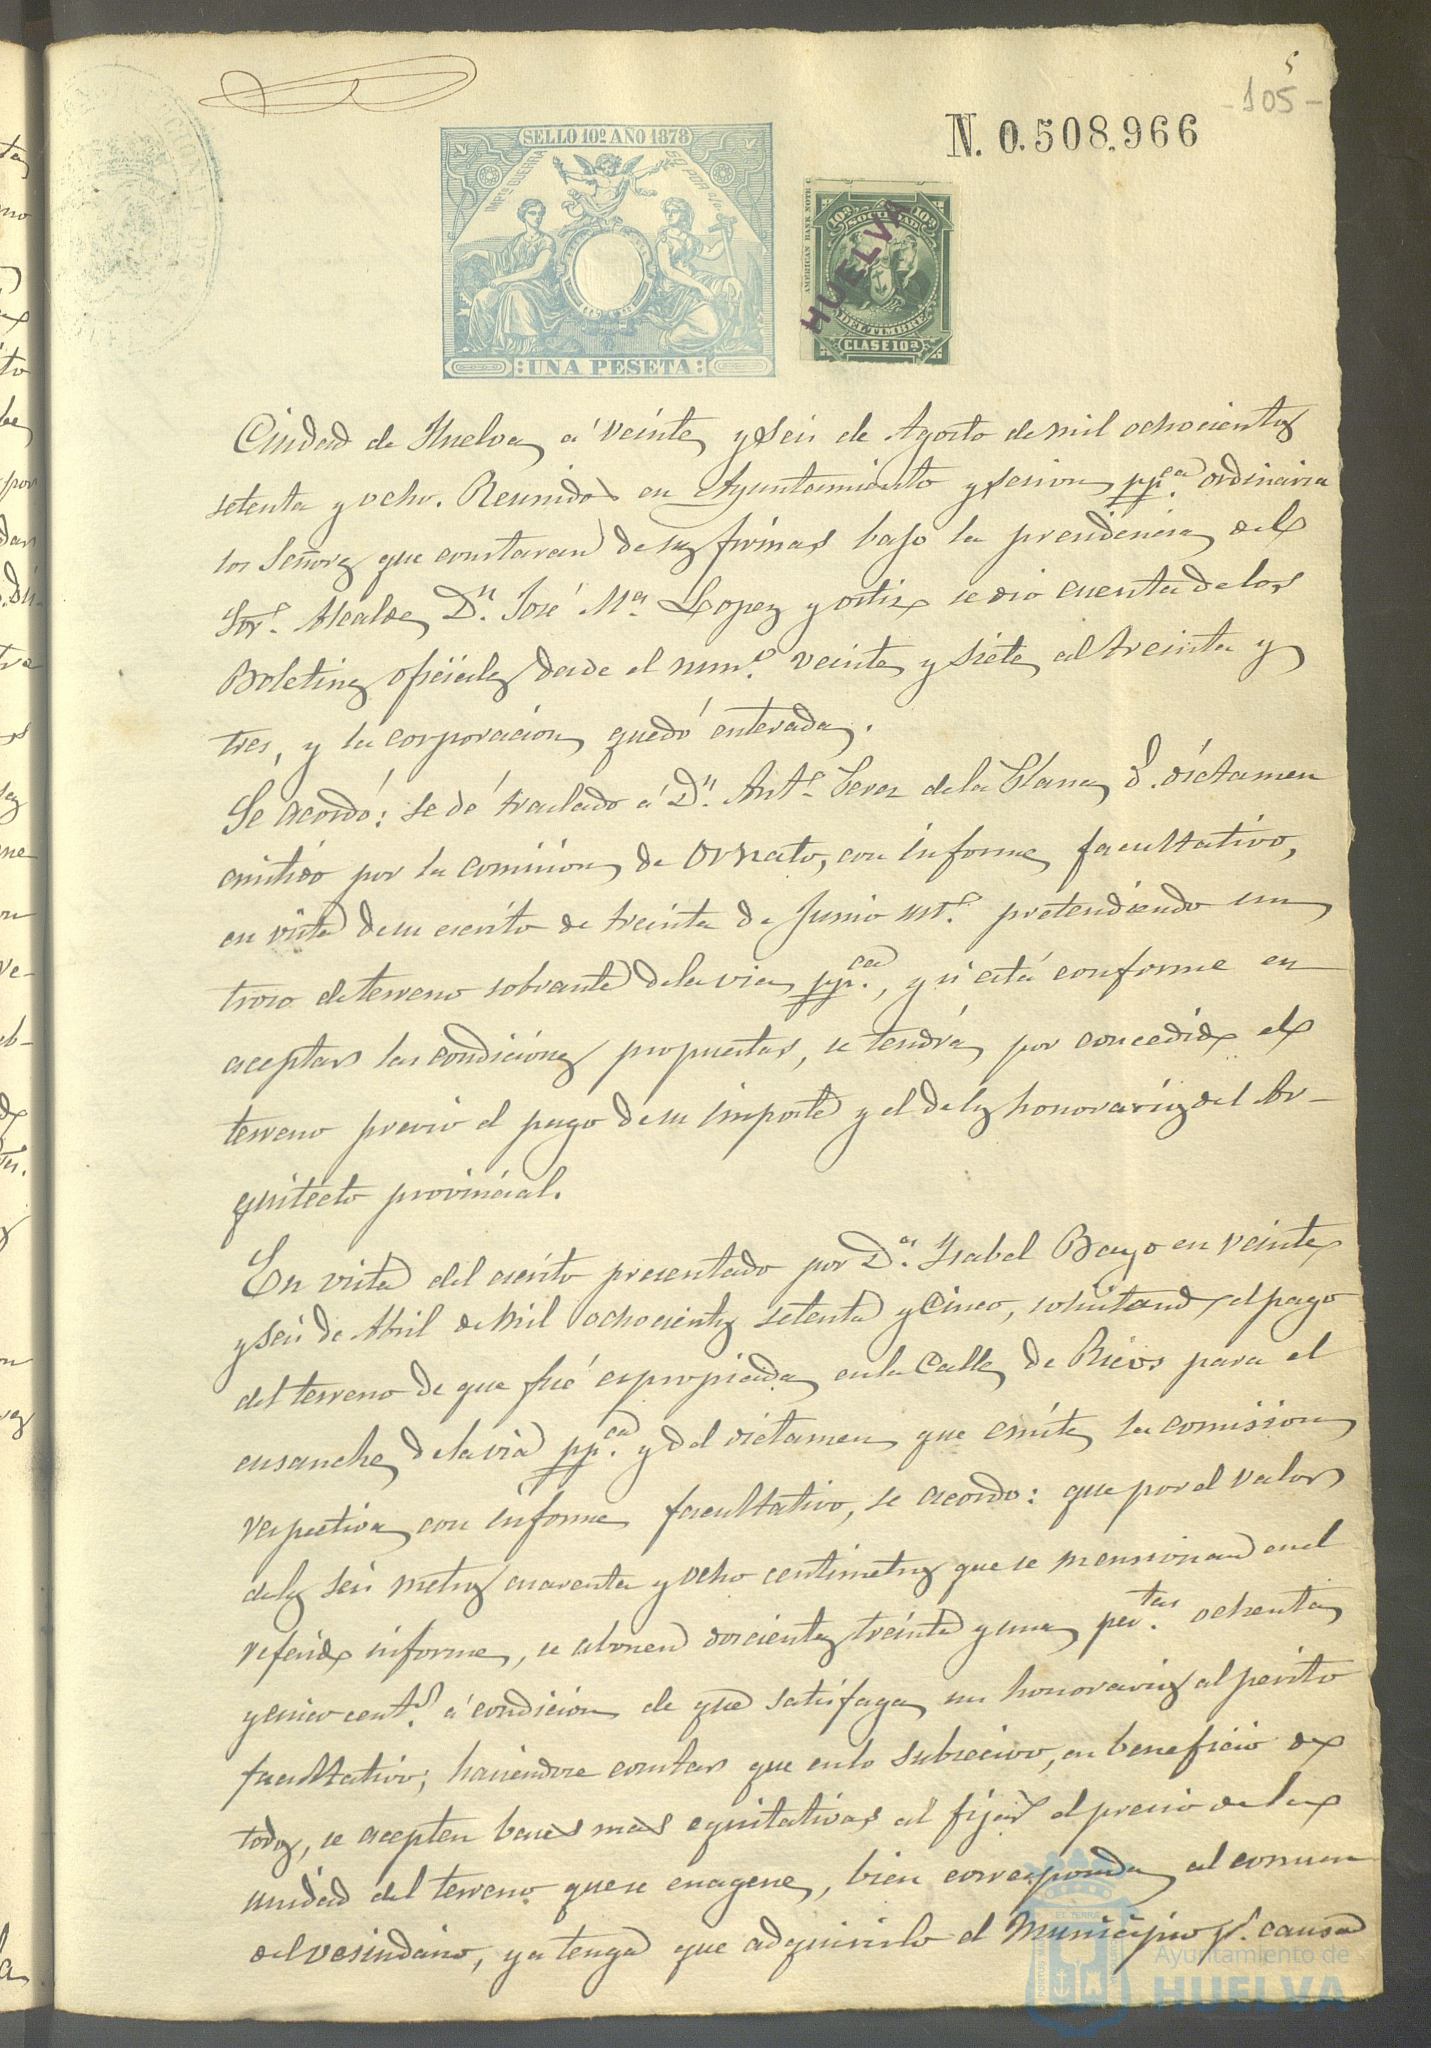 5
-105-
N. 0.508.966
SELLO 10º AÑO 1878
IMPTO GUERRA
50 POR 0/0
UNA PESETA
AMERICAN BANK NOTE C
10ª SOCIEDAD 10ª
DEL TIMBRE
CLASE 10ª
HUELVA
Ciudad de Huelva á veinte y seis de Agosto de mil ochocientos
setenta y ocho. Reunidos en Ayuntamiento y sesion pp.ca ordinaria
los Señores que constaran de sus firmas bajo la presidencia del
Sor. Alcalde D.n José M.a Lopez y Ortiz se dió cuenta de los
Boletines oficiales desde el num.o veinte y siete al treinta y
tres, y la corporacion quedó enterada.
Se acordó: se dé traslado á D.n Ant.o Perez de la Llana d. dictamen
emitido por la comision de Ornato, con informe facultativo,
en vista de su escrito de treinta de Junio ult.o pretendiendo un
trozo de terreno sobrante de la via pp.ca, y si está conforme en
aceptar las condiciones propuestas, se tendrá por concedido el
terreno previo el pago de su importe y el de los honorarios del Ar-
quitecto provincial.
En vista del escrito presentado por D.a Isabel Bayo en veinte
y seis de Abril de mil ochocientos setenta y Cinco, solicitando el pago
del terreno de que fué espropiada en la Calle de Ricos para el
ensanche de la via pp.ca y del dictamen que emite la comision
respectiva con informe facultativo, se acordo: que por el valor
de los seis metros cuarenta y ocho centimetros que se mensionan en el
referido informe, se abonen doscientas treinta y una pes.tas ochenta
y cinco cent.s á condicion de que satisfaga sus honorarios al perito
facultativo; haciendose constar que en lo subsecivo, en beneficio de
todos, se acepten bases mas equitativas al fijar el precio de la
unidad del terreno que se enagene, bien corresponda al comun
del vesindario, ya tenga que adquirirlo el Municipio p.r causa
Ayuntamiento de
HUELVA